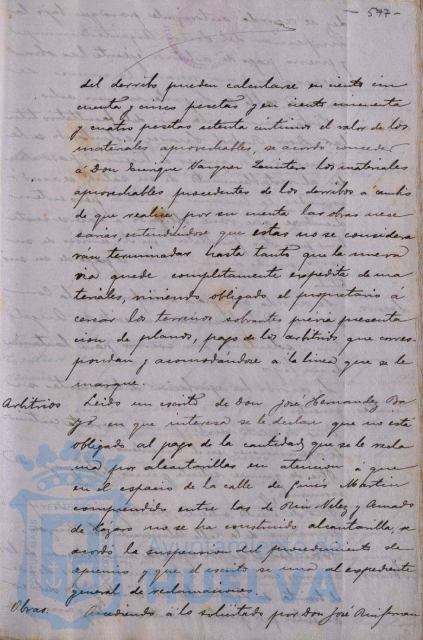 - 597 -
del derribo pueden calcularse en ciento cin
cuenta y cinco pesetas y en ciento cincuenta
y cuatro pesetas setenta centimos el valor de los
materiales aprovechables, se acordó conceder
á Don Enrique Vazquez los materiales
aprovechables procedentes de los derribos á cambio
de que realice por su cuenta las obras nece
sarias, entendiendose que estas no se considera
rán terminadas hasta tanto que la nueva
via quede completamente expedita de ma
teriales, viniendo obligado el propietario á
cercar los terrenos sobrante previa presenta
cion de planos, pago de los arbitrios que corres
pondan y acomodándose á la linea que se le
marque.
Arbitrios Leido un escrito de Don José Hernandez
en que interesa se le declare que no está
obligado al pago de la cantidad que se le recla
ma por alcantarillas en atencion á que
en el espacio de la calle de Ginés Martin
comprendido entre las de Velez y Amado
de Lázaro no se ha construido alcantarilla, se
acordó la suspension del procedimiento de
apremio y que el escrito se una al expediente
general de reclamaciones.
Obras. Accediendo á lo solicitado por Don José
AYUNTAMIENTO DE
HUELVA